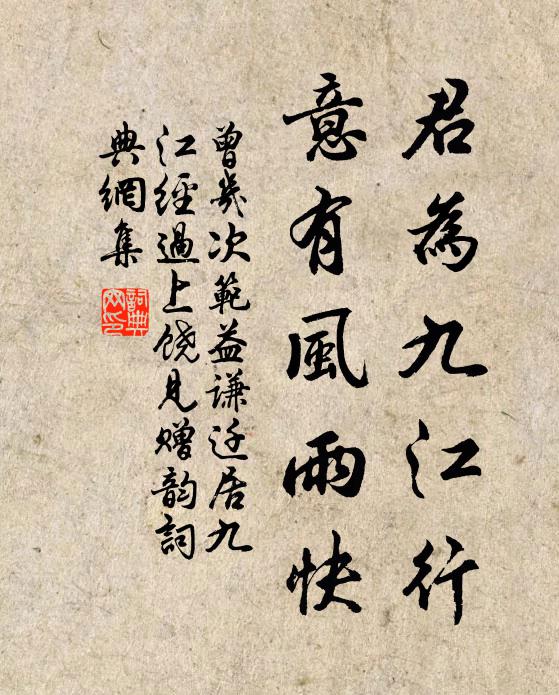 君為九江行
意有風雨快
曾幾次範益謙迁居九
江經過上饶見贈韵詞
典網集
詞典网印